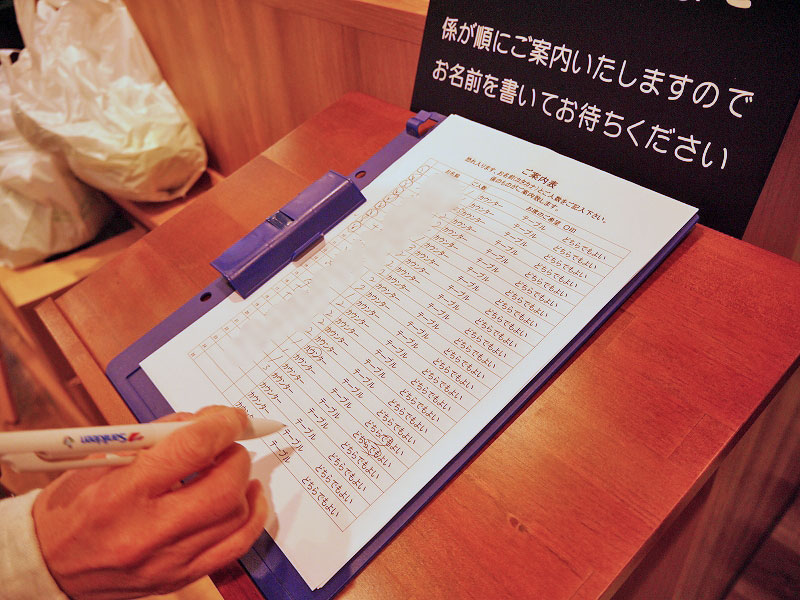 係が順にご案内いたしますので
お名前を書いてお待ちください
ご案内表
恐れ入ります、お名前(カタカナ)とご人数をご記入下さい。
係のものがご案内致します。
お名前 ご人数 お席のご希望 〇印
カウンター テーブル どちらでもよい
カウンター テーブル どちらでもよい
カウンター テーブル どちらでもよい
カウンター テーブル どちらでもよい
カウンター テーブル どちらでもよい
カウンター テーブル どちらでもよい
カウンター テーブル どちらでもよい
カウンター テーブル どちらでもよい
カウンター テーブル どちらでもよい
カウンター テーブル どちらでもよい
カウンター テーブル どちらでもよい
カウンター テーブル どちらでもよい
カウンター テーブル どちらでもよい
カウンター テーブル どちらでもよい
カウンター テーブル どちらでもよい